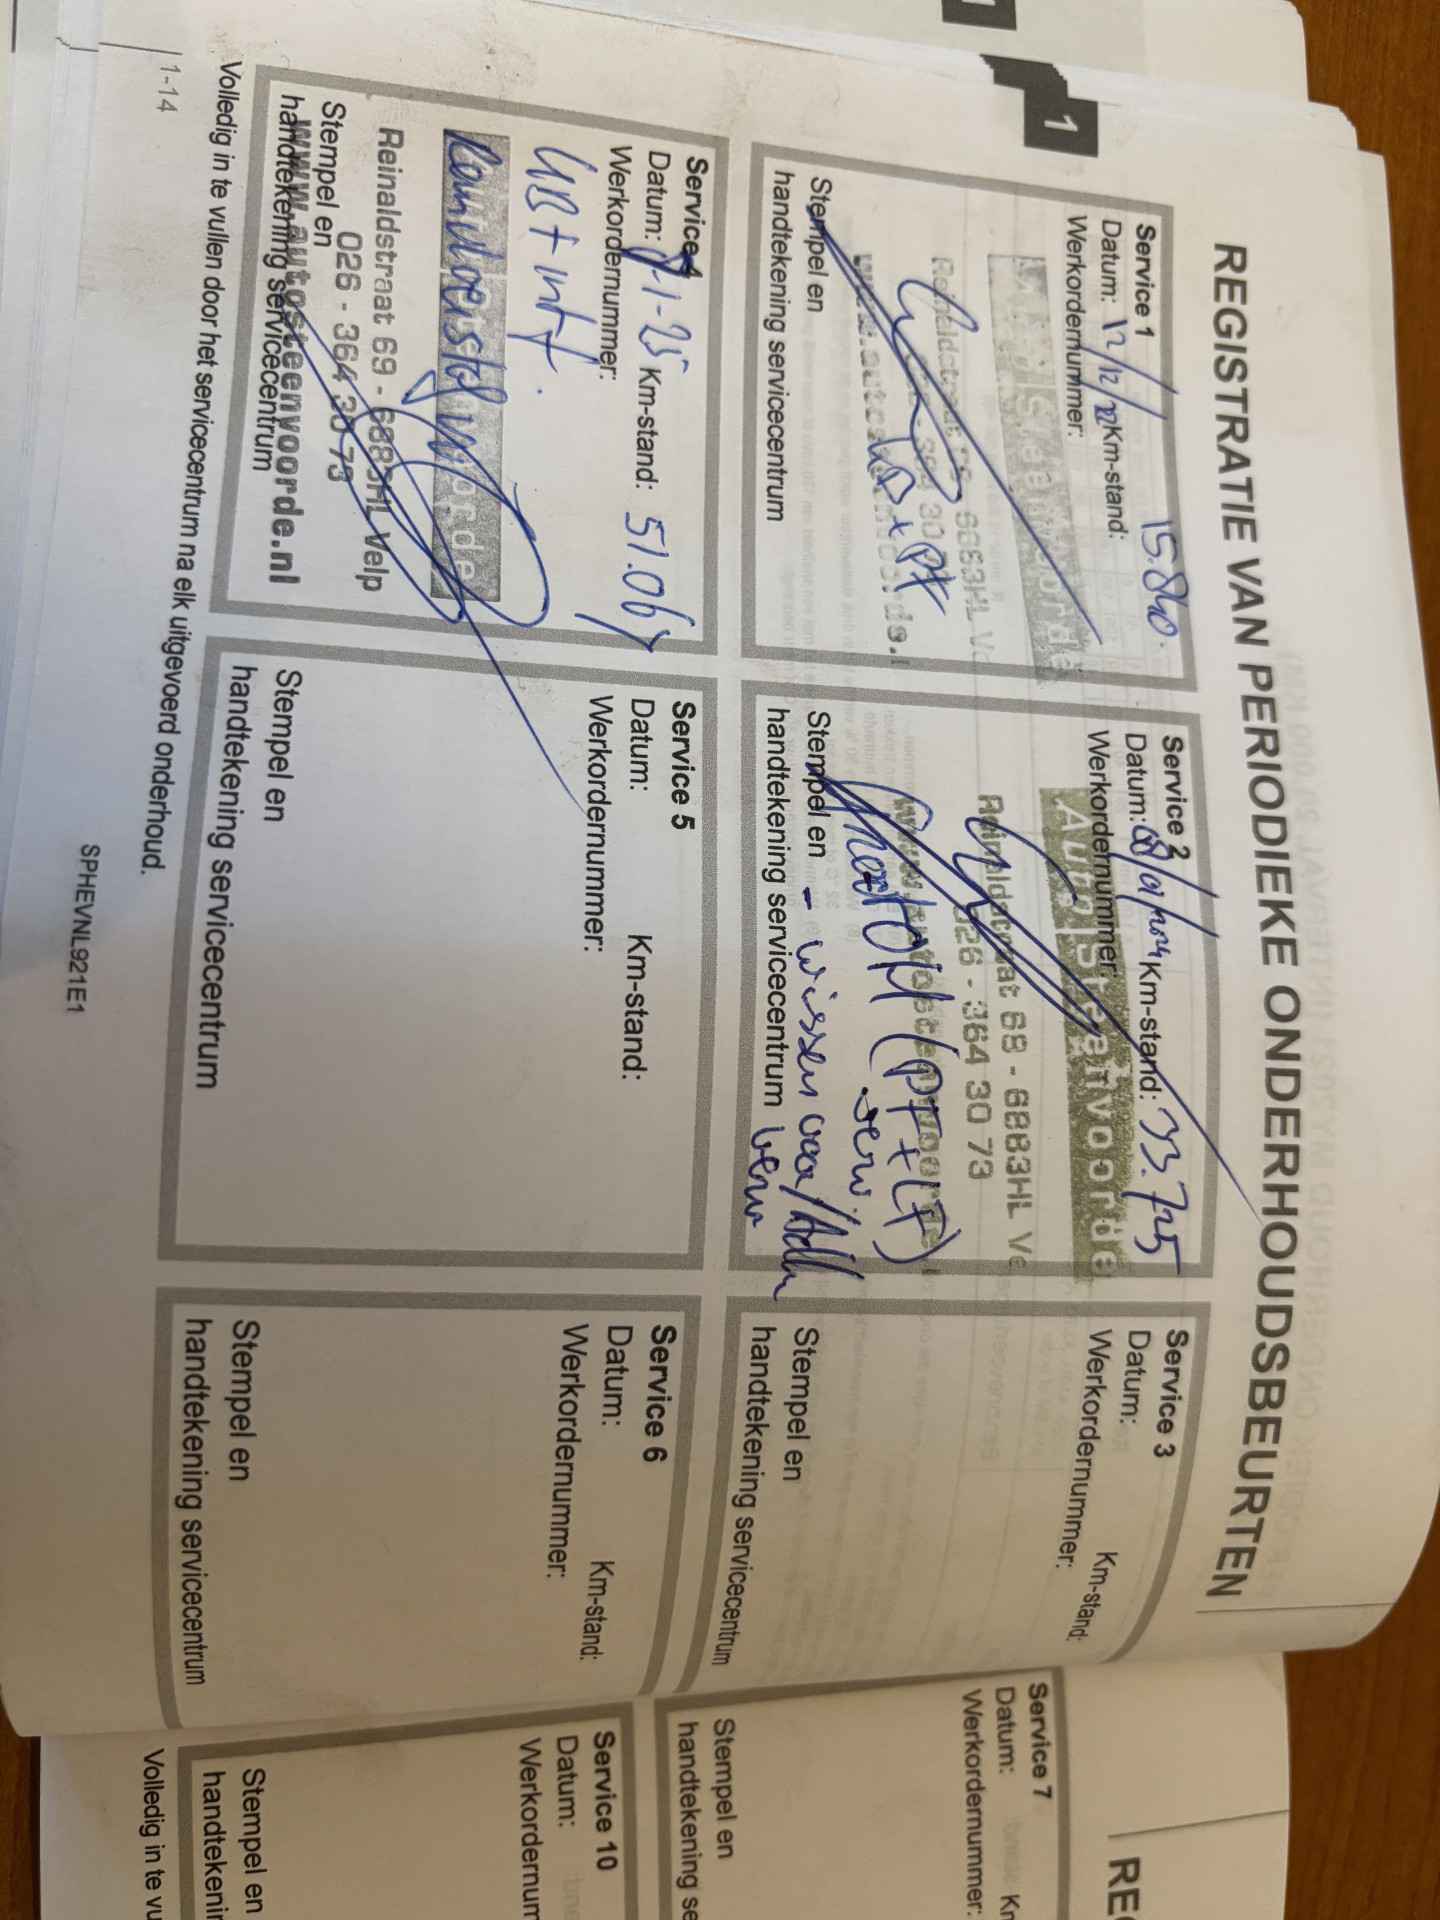 1
REGISTRATIE VAN PERIODIEKE ONDERHOUDSBEURTEN
Service 1
15.840
Datum: 12/12/22 Km-stand:
Werkordernummer:
Stempel en
handtekening servicecentrum
Service 2
Datum: 08/01/2024 Km-stand: 33.725
Werkordernummer:
Auto Steenvoorde
Reinaldstraat 69 - 6883HL Ve
026 - 364 30 73
Stempel en - wissen voor/
handtekening servicecentrum
Service 3
Datum: Km-stand:
Werkordernummer:
Stempel en
handtekening servicecentrum
Service 4
Datum: 8-1-25 Km-stand: 51.064
Werkordernummer:
Reinaldstraat 69 - 6883HL Velp
026 - 364 30 73
Stempel en
www.autosteenvoorde.nl
handtekening servicecentrum
Service 5
Datum: Km-stand:
Werkordernummer:
Stempel en
handtekening servicecentrum
Service 6
Datum: Km-stand:
Werkordernummer:
Stempel en
handtekening servicecentrum
Volledig in te vullen door het servicecentrum na elk uitgevoerd onderhoud.
1-14
SPHEVNL921E1
Service 7
Datum:
Werkordernummer:
Stempel en
handtekening se
Service 10
Datum:
Werkordernum
Stempel en
handtekenin
Volledig in te vu